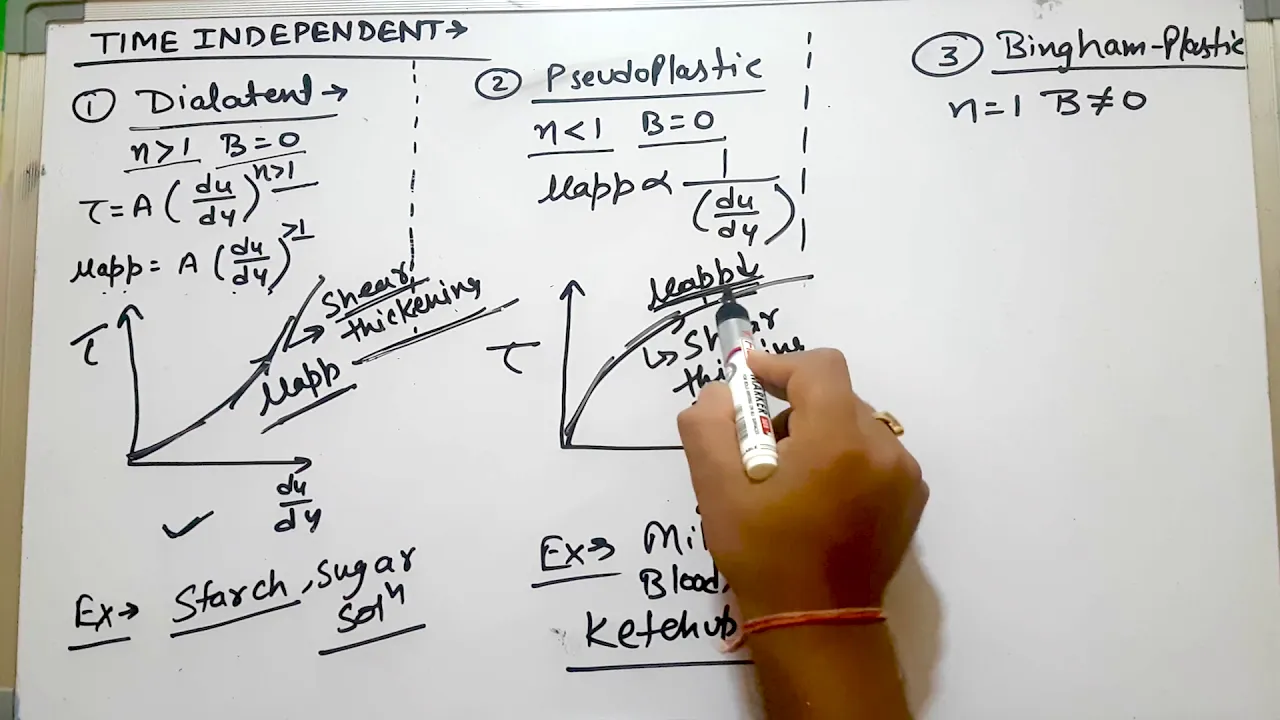 TIME INDEPENDENT→
① Dialatent→
n>1 B=0
τ = A (du/dy)^n>1
μapp = A (du/dy)^>1
Shear
thickening
μapp
τ
du/dy
Ex→ Starch, Sugar
Solⁿ
② Pseudoplastic
n<1 B=0
μapp ∝ 1/(du/dy)
μapp↓
τ
Ex→
Blood,
Ketchup
③ Bingham-Plastic
n=1 B≠0